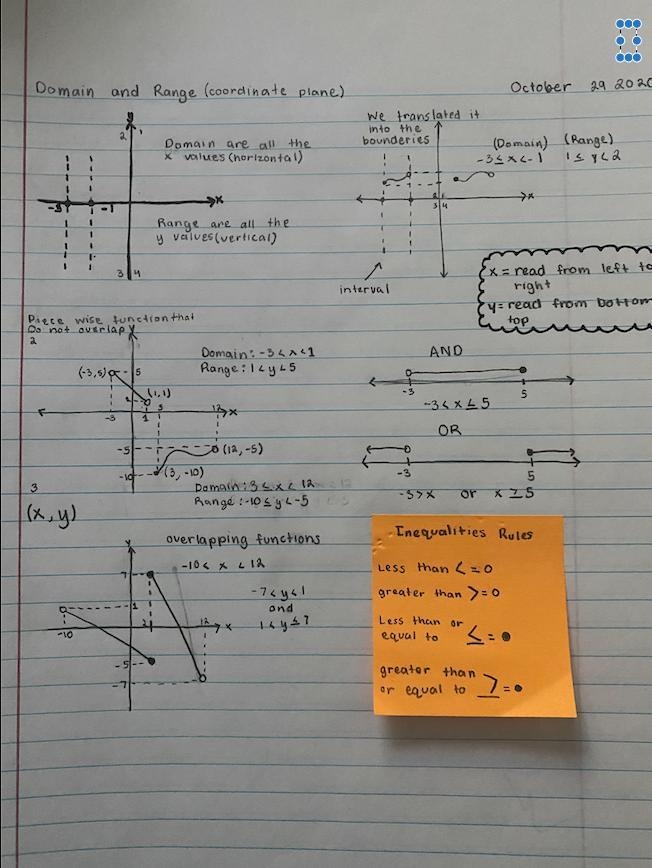 Domain and Range (coordinate plane)
October 29 2020
y
2
1
Domain are all the
x values (horizontal)
-3
-1
x
Range are all the
y values (vertical)
3
4
We translated it
into the
bounderies
(Domain) (Range)
-3≤x<-1 1≤y<2
x
2
3 4
interval
x = read from left to
right
y= read from bottom
top
Piece wise function that
Do not overlap
y
2
(-3,5)
5
(1,1)
-3
1
3
12
x
-5
(12,-5)
-10
(3, -10)
Domain: -3<x<1
Range: 1<y<5
Domain: 3≤x<12
Range: -10≤y<-5
AND
-3
5
-3<x≤5
OR
-3
5
-3>x or x≥5
3
(x,y)
overlapping functions
y
7
-10< x <12
1
-10
2
12
x
-5
-7
-7<y<1
and
1<y≤7
Inequalities Rules
Less than < = o
greater than > = o
Less than or
equal to ≤ = ●
greater than
or equal to ≥ = ●